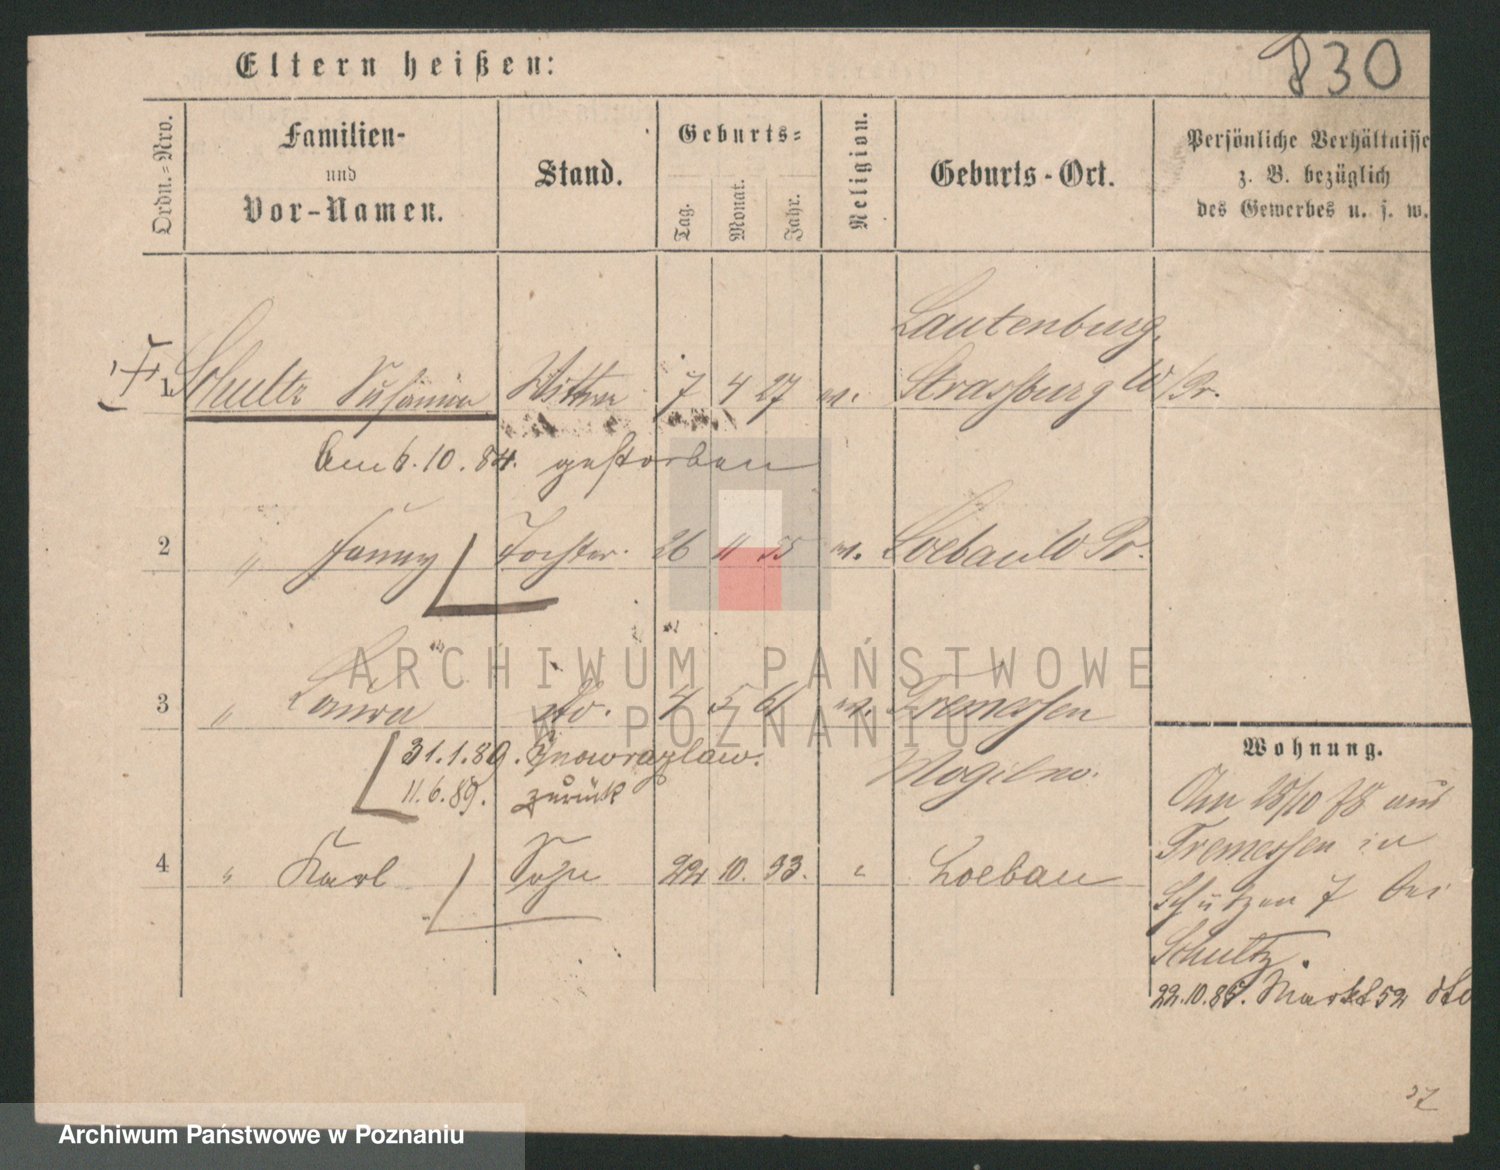 830
Eltern heißen:
Ordn.-Nro.
Familien-
und
Vor-Namen.
Stand.
Geburts-
Tag.
Monat.
Jahr.
Religion.
Geburts-Ort.
Persönliche Verhältnisse
z. B. bezüglich
des Gewerbes u. s. w.
Lautenburg,
1. Schultz Susanna Wittwe 7 4 27 m. Strasburg W/Pr.
Am 6.10.84. gestorben
2 " Fanny Tochter. 26 11 55 m. Loebau W Pr.
3 " Laura do. 4 5 61 m. Tremessen
31.1.89. Inowrazlaw. Mogilno.
11.6.89. zurück
4 " Karl Sohn 22 10. 53. " Loebau
Wohnung.
Am 28/10 78 aus
Tremessen in
Schützen 7 bei
Schultz.
22.10.85. Markt 52 dto
ARCHIWUM PAŃSTWOWE
W POZNANIU
Archiwum Państwowe w Poznaniu